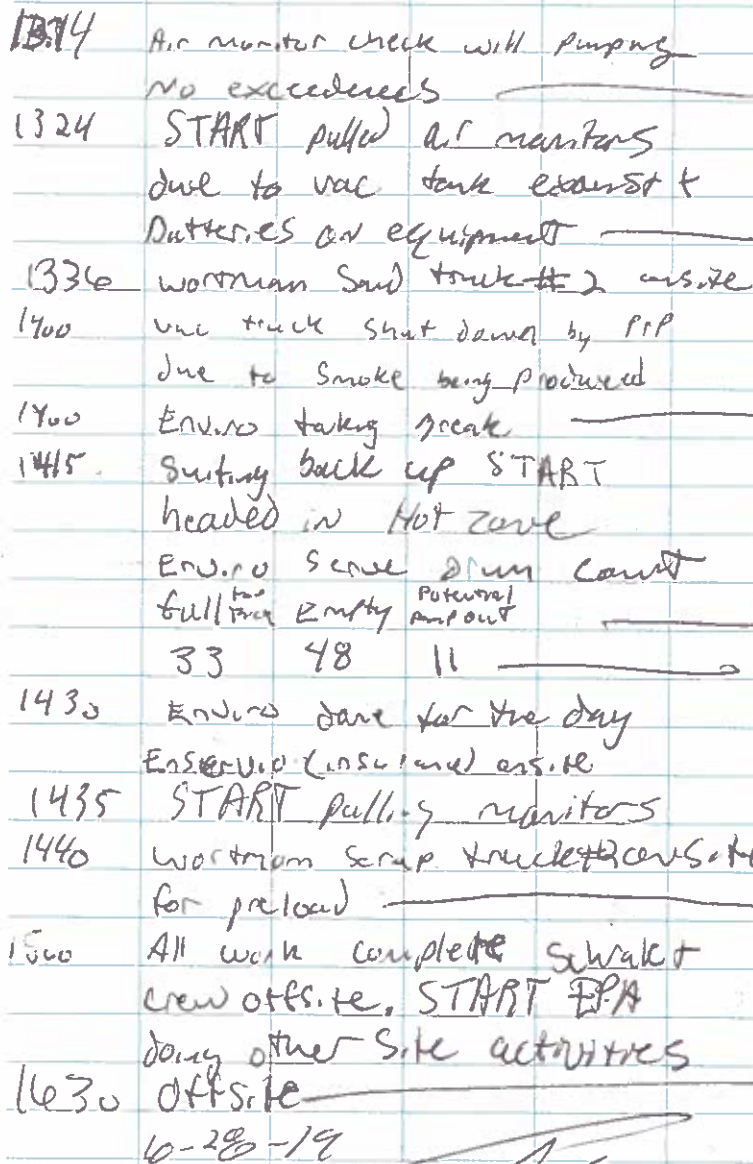 1314 Air monitor check will pumping
No exceedences
1324 START pulled air monitors
due to vac tank exaust +
Batteries on equipment
1336 wortman Said truck # 2 onsite
1400 vac truck shut down by PrP
due to Smoke being produced
1400 Enviro taking Break
1415 Suiting back up START
headed in Hot Zone
Enviro Serve Drum Count
full Empty Potential pump out
33 48 11
1430 Enviro done for the day
Enservio (insurance) onsite
1435 START pulling monitors
1440 wortman Scrap truck #2 onSite
for preload
1500 All work complete Schrakt
crew offsite, START EPA
doing other Site activities
1630 Offsite
6-28-19